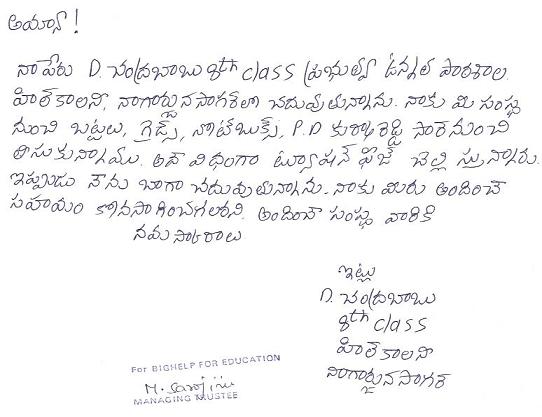 అయ్యా!
నా పేరు D. చంద్రబాబు 8th class ప్రభుత్వ ఉన్నత పాఠశాల
హిల్ కాలని, నాగార్జునసాగర్‌లో చదువుతున్నాను. నాకు మి సంస్థ
నుంచి బట్టలు, నోట్‌బుక్స్, P.D సార్ నుంచి
తిసుకున్నాము. అదే విధంగా ట్యూషన్ ఫిజ్ చెల్లిస్తున్నారు.
ఇప్పుడు నేను బాగా చదువుతున్నాను. నాకు మిరు అందించే
సహాయం కొనసాగించగలరని. అందించే సంస్థ వారికి
నమస్కారాలు
ఇట్లు
D. చంద్రబాబు
8th class
హిల్ కాలని
నాగార్జునసాగర్
For BIGHELP FOR EDUCATION
MANAGING TRUSTEE